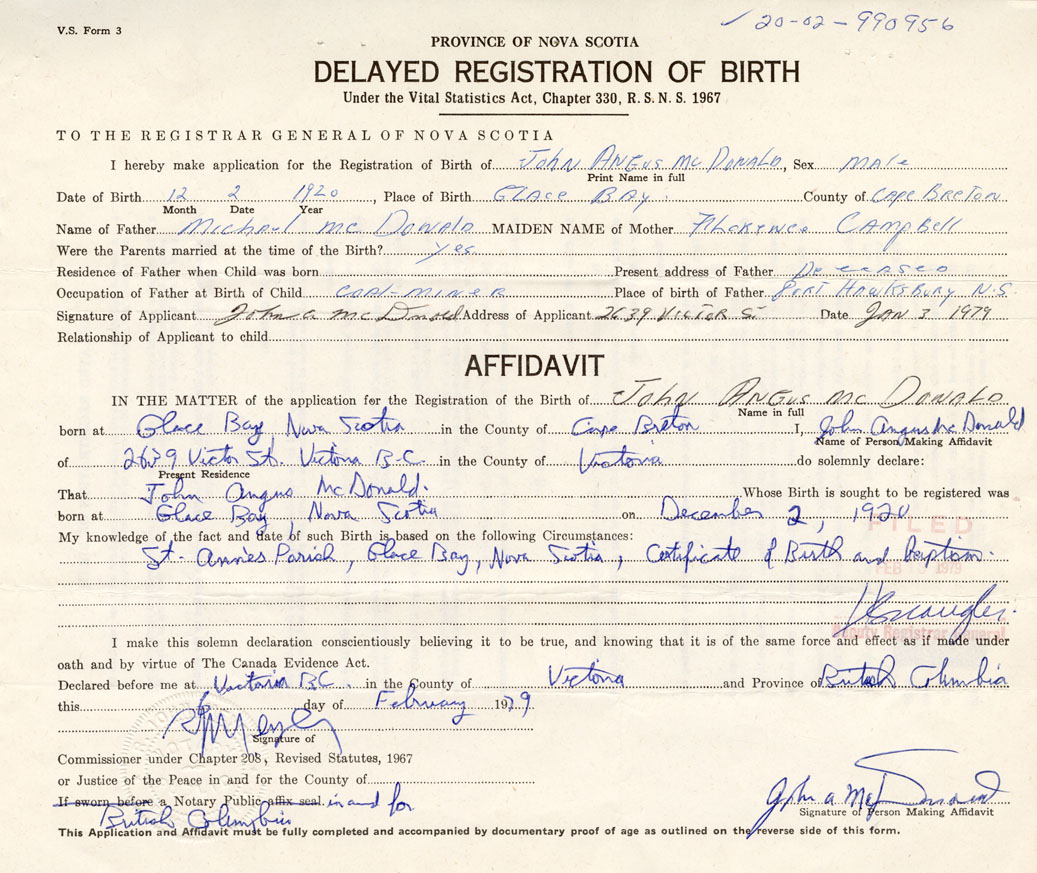 V.S. Form 3
20-02-990956
PROVINCE OF NOVA SCOTIA
DELAYED REGISTRATION OF BIRTH
Under the Vital Statistics Act, Chapter 330, R. S. N. S. 1967
TO THE REGISTRAR GENERAL OF NOVA SCOTIA
I hereby make application for the Registration of Birth of John Angus Mc Donald, Sex Male
Print Name in full
Date of Birth 12 2 1920, Place of Birth Glace Bay. County of Cape Breton
Month Date Year
Name of Father Michael Mc Donald MAIDEN NAME of Mother Florence Campbell
Were the Parents married at the time of the Birth? Yes
Residence of Father when Child was born Present address of Father Deceased
Occupation of Father at Birth of Child Coal-Miner Place of birth of Father Port Hawksbury N.S.
Signature of Applicant John A Mc Donald Address of Applicant 2639 Victor St Date Jan 3 1979
Relationship of Applicant to child
AFFIDAVIT
IN THE MATTER of the application for the Registration of the Birth of John Angus Mc Donald
Name in full
born at Glace Bay, Nova Scotia in the County of Cape Breton I, John Angus Mc Donald
Name of Person Making Affidavit
of 2639 Victor St. Victoria B.C. in the County of Victoria do solemnly declare:
Present Residence
That John Angus McDonald. Whose Birth is sought to be registered was
born at Glace Bay, Nova Scotia on December 2, 1920
FILED
My knowledge of the fact and date of such Birth is based on the following Circumstances:
St. Annes Parish, Glace Bay, Nova Scotia, Certificate of Birth and baptism.
FEB 1979
Deputy Registrar General
I make this solemn declaration conscientiously believing it to be true, and knowing that it is of the same force and effect as if made under
oath and by virtue of The Canada Evidence Act.
Declared before me at Victoria B.C. in the County of Victoria and Province of British Columbia
this day of February 1979
Signature of
Commissioner under Chapter 208, Revised Statutes, 1967
or Justice of the Peace in and for the County of
If sworn before a Notary Public affix seal. in and for
British Columbia
John A McDonald
Signature of Person Making Affidavit
This Application and Affidavit must be fully completed and accompanied by documentary proof of age as outlined on the reverse side of this form.